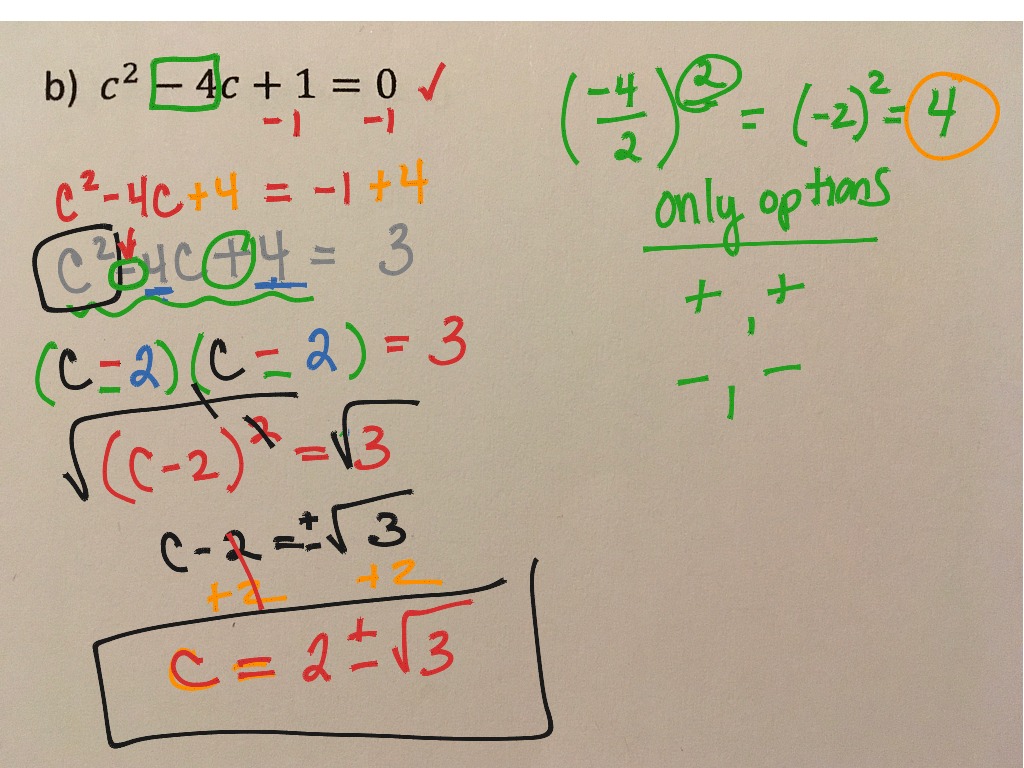 b) c² − 4c + 1 = 0 ✓
−1 −1
c² − 4c + 4 = −1 + 4
c² − 4c + 4 = 3
(c − 2)(c − 2) = 3
√(c − 2)² = √3
c − 2 = ±√3
+2 +2
c = 2 ± √3
(−4/2)² = (−2)² = 4
only options
+ , +
− , −